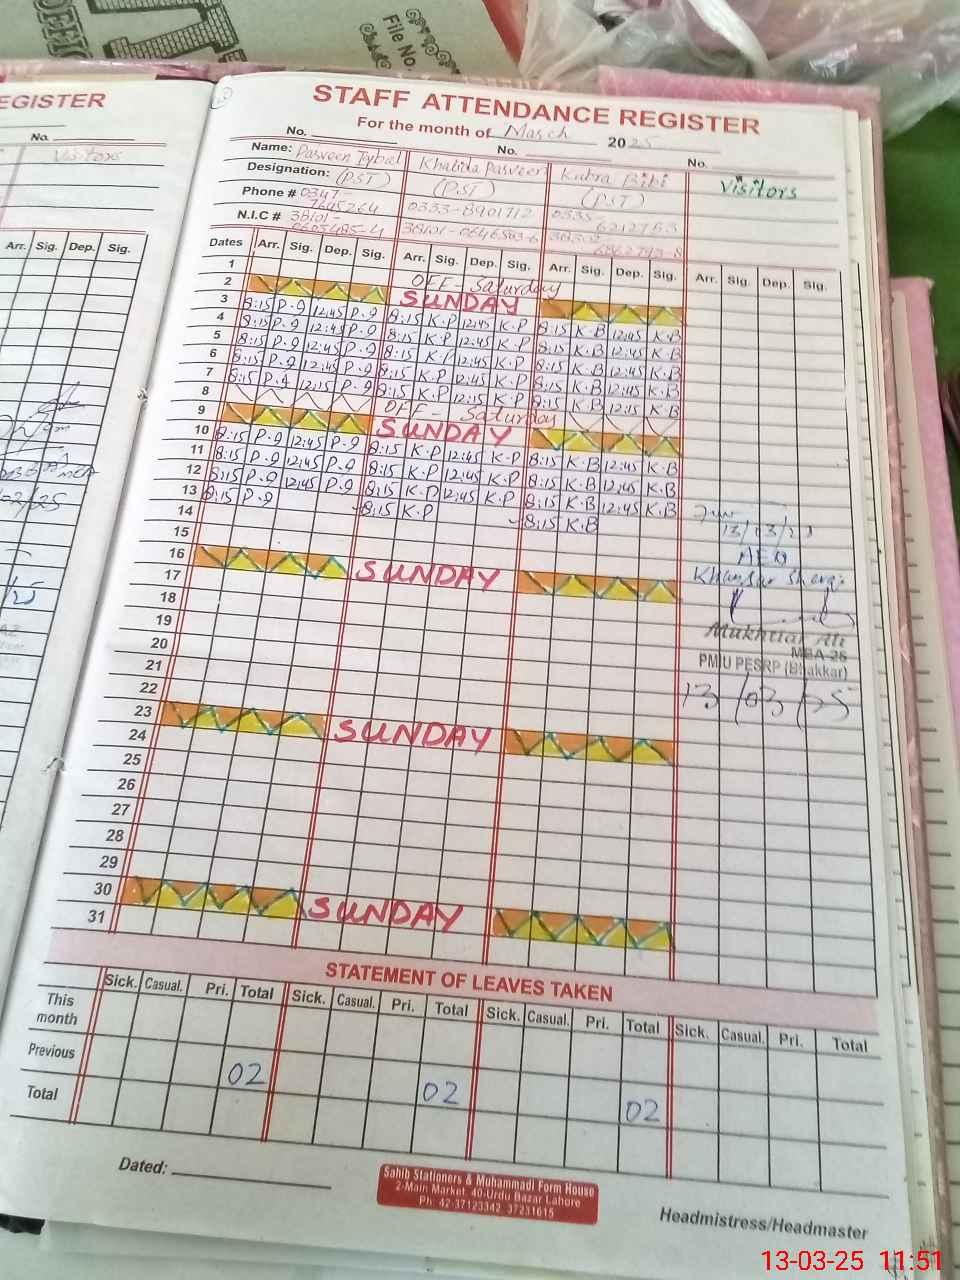 File No.
EGISTER
No.
Visitors
Arr. Sig. Dep. Sig.
STAFF ATTENDANCE REGISTER
For the month of March 2025
No. No. No.
Name: Parveen Iqbal Khalida Parveen Kubra Bibi Visitors
Designation: (PST) (PST) (PST)
Phone # 0347-7645264 0333-8901712 0335-6212753
N.I.C # 38101-0605485-4 38101-0646503-6 38302
Dates Arr. Sig. Dep. Sig. Arr. Sig. Dep. Sig. Arr. Sig. Dep. Sig. Arr. Sig. Dep. Sig.
1 OFF - Saturday
2 SUNDAY
3 8:15 P.I 12:45 P.I 8:15 K.P 12:45 K.P 8:15 K.B 12:45 K.B
4 8:15 P.I 12:45 P.I 8:15 K.P 12:45 K.P 8:15 K.B 12:45 K.B
5 8:15 P.I 12:45 P.I 8:15 K.P 12:45 K.P 8:15 K.B 12:45 K.B
6 8:15 P.I 12:45 P.I 8:15 K.P 12:45 K.P 8:15 K.B 12:45 K.B
7 8:15 P.I 12:15 P.I 8:15 K.P 12:15 K.P 8:15 K.B 12:15 K.B
8 OFF - Saturday
9 SUNDAY
10 8:15 P.I 12:45 P.I 8:15 K.P 12:45 K.P 8:15 K.B 12:45 K.B
11 8:15 P.I 12:45 P.I 8:15 K.P 12:45 K.P 8:15 K.B 12:45 K.B
12 8:15 P.I 12:45 P.I 8:15 K.P 12:45 K.P 8:15 K.B 12:45 K.B
13 8:15 P.I 8:15 K.P 8:15 K.B
14
15
16 SUNDAY
17
18
19
20
21
22
23 SUNDAY
24
25
26
27
28
29
30 SUNDAY
31
13/03/25
AEO
Khansar
Mukhtiar Ali
MEA-25
PMIU PESRP (Bhakkar)
13/03/25
STATEMENT OF LEAVES TAKEN
Sick. Casual. Pri. Total Sick. Casual. Pri. Total Sick. Casual. Pri. Total Sick. Casual. Pri. Total
This month
Previous 02 02 02
Total
Dated:
Sahib Stationers & Muhammadi Form House
2-Main Market, 40-Urdu Bazar Lahore
Ph: 42-37123342 37231615
Headmistress/Headmaster
13-03-25 11:51